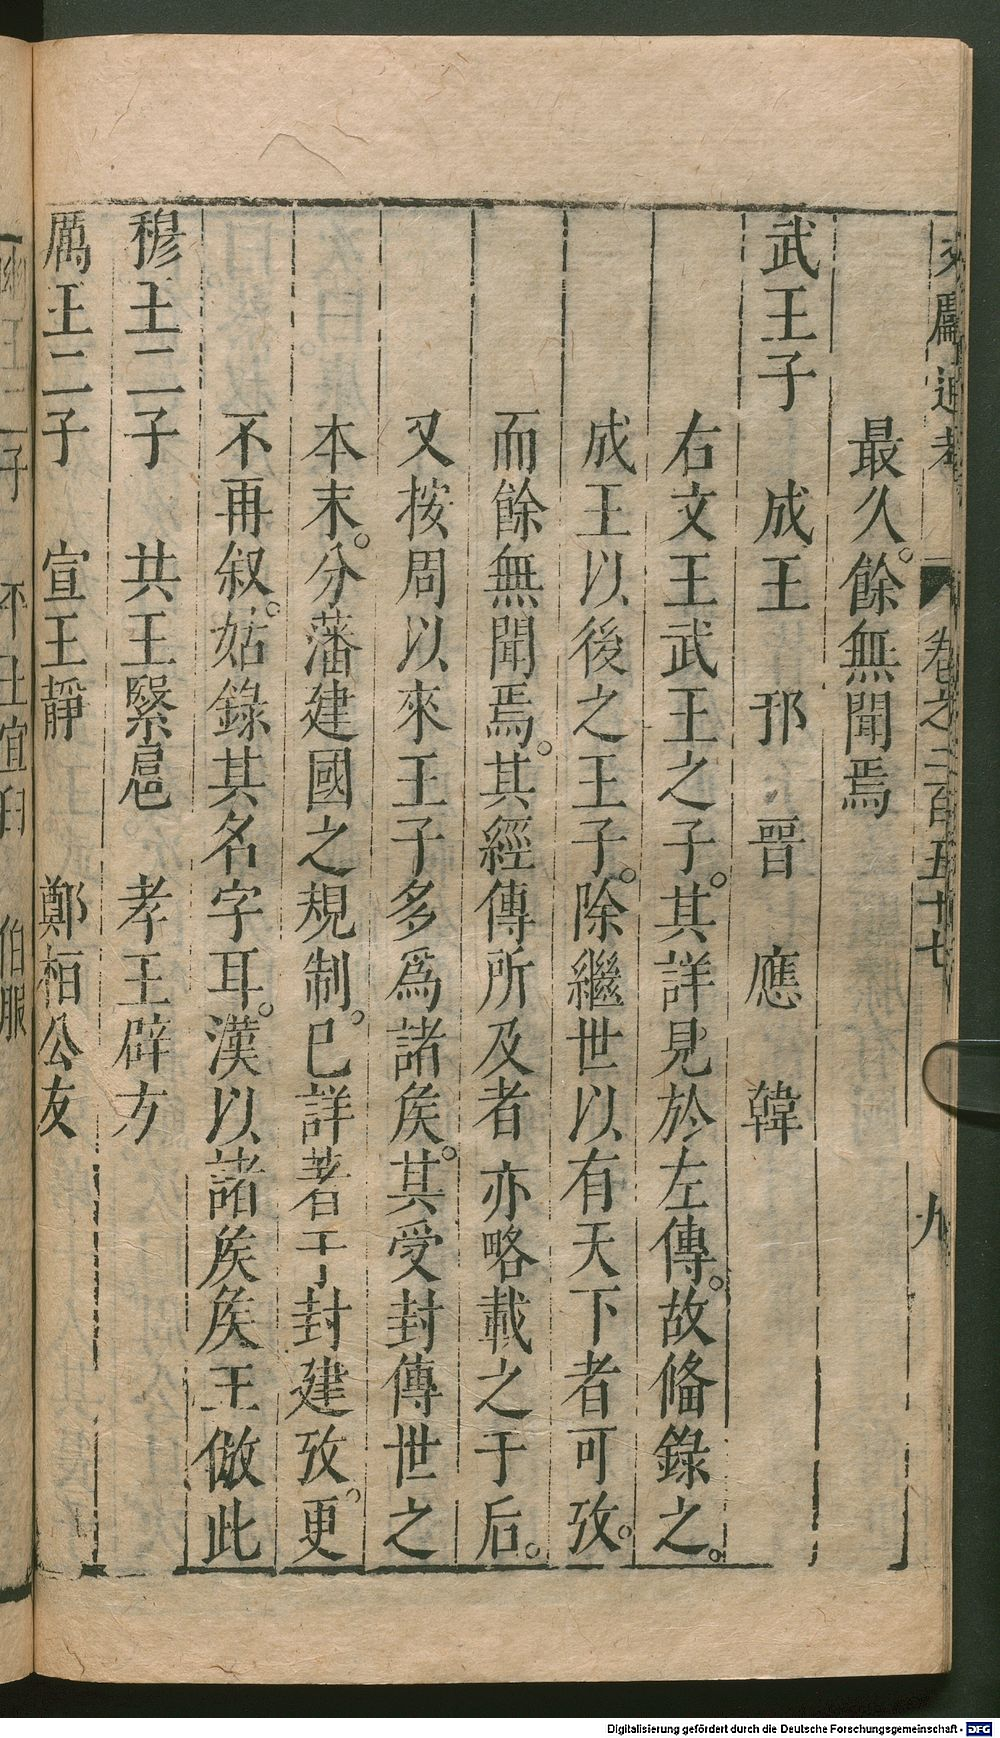 文獻通考 卷之二百五十七 九
最久。餘無聞焉
武王子 成王 邘 晉 應 韓
右文王武王之子。其詳見於左傳。故俻錄之。
成王以後之王子。除繼世以有天下者可攷。
而餘無聞焉。其經傳所及者亦略載之于后。
又按周以來王子多爲諸矦。其受封傳世之
本末。分藩建國之規制。已詳著于封建攷。更
不再叙。姑錄其名字耳。漢以諸矦矦王倣此
穆王二子 共王緊扈 孝王辟方
厲王二子 宣王靜 鄭桓公友
幽王二子 平王宜臼 伯服
Digitalisierung gefördert durch die Deutsche Forschungsgemeinschaft - DFG